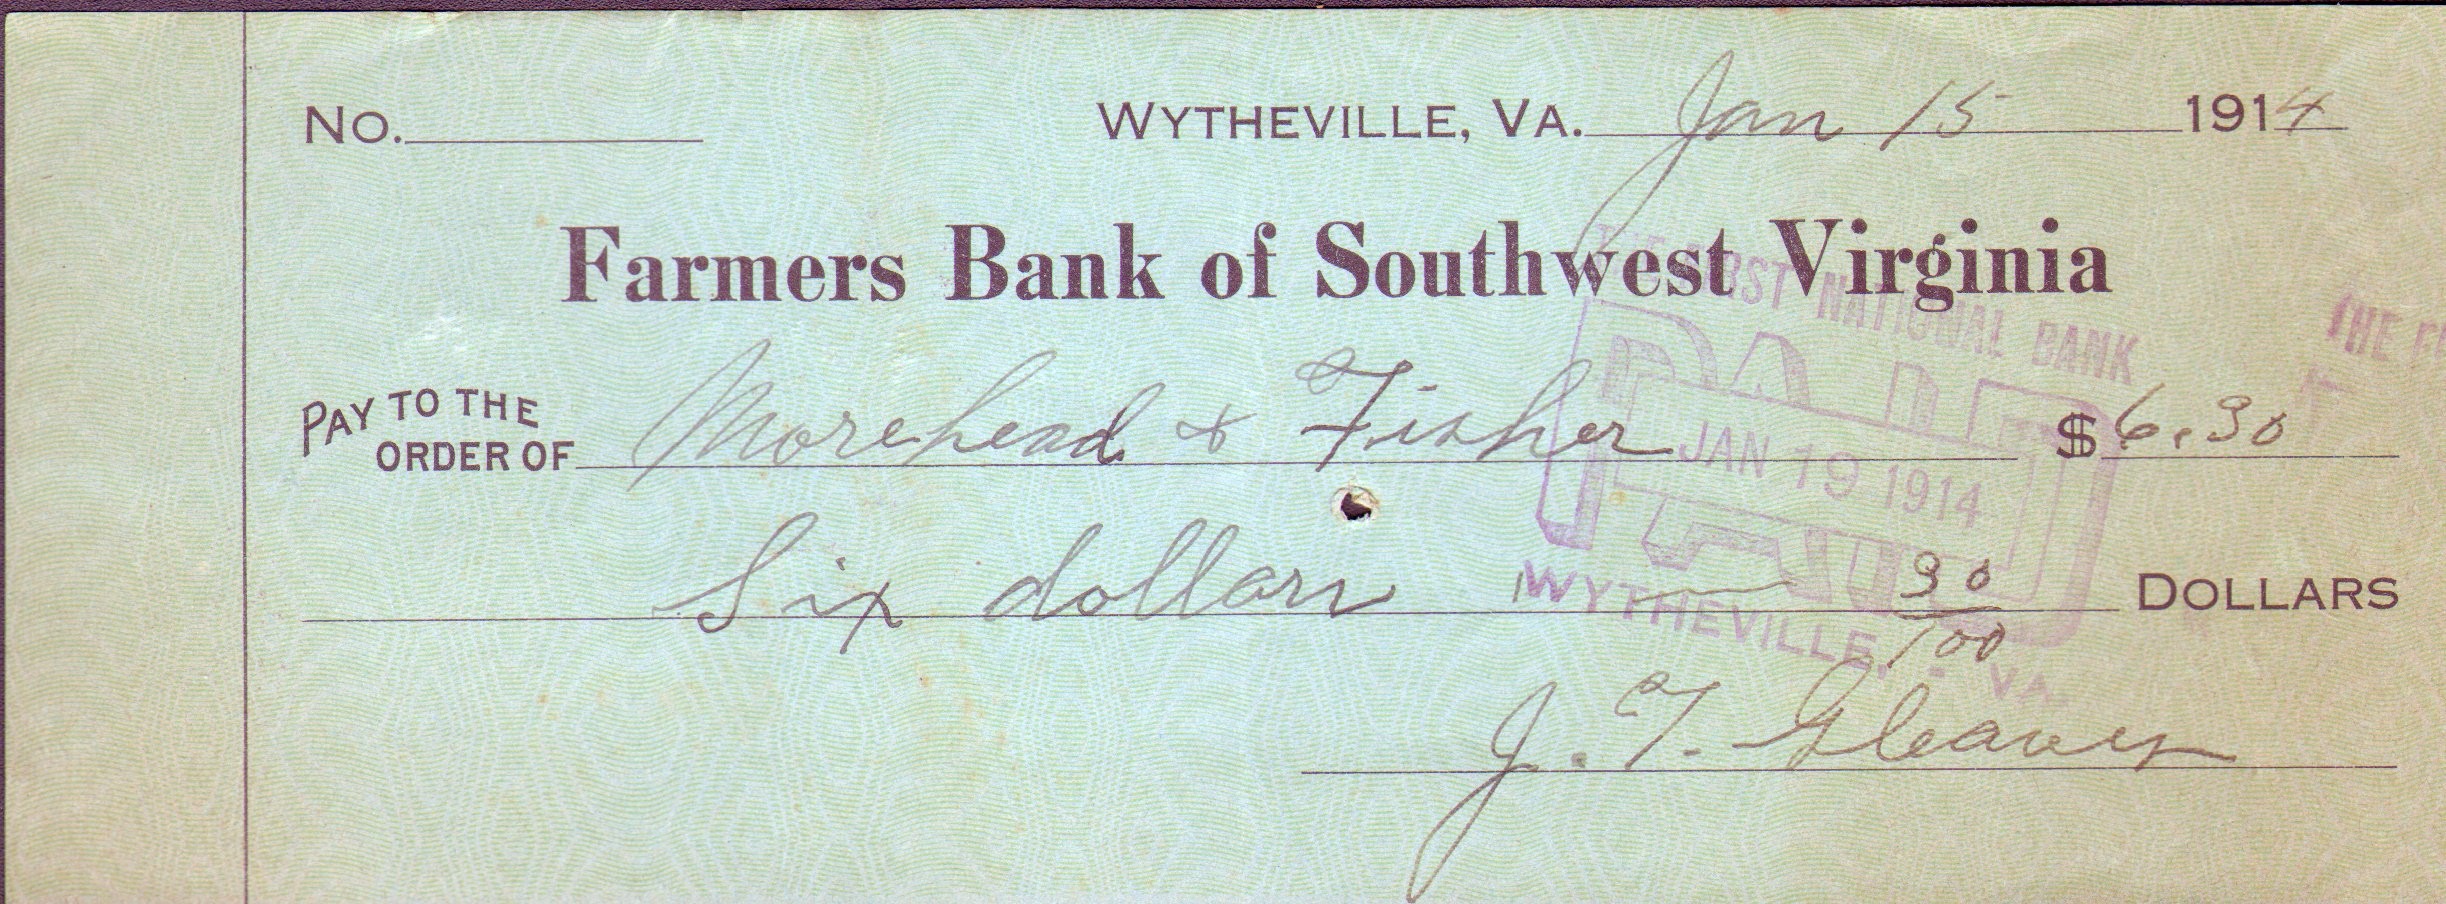 No. WYTHEVILLE, VA. Jan 15 1914
Farmers Bank of Southwest Virginia
THE FIRST NATIONAL BANK
THE FI
PAY TO THE
ORDER OF Morehead & Fisher $6.30
PAID
JAN 19 1914
PAID
Six dollars 30/100 DOLLARS
WYTHEVILLE, - VA.
J. T. Gleaves